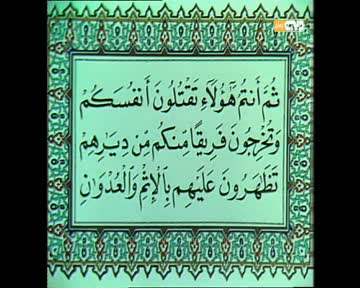 ثُمَّ أَنتُمْ هَٰٓؤُلَآءِ تَقْتُلُونَ أَنفُسَكُمْ
وَتُخْرِجُونَ فَرِيقًا مِّنكُم مِّن دِيَٰرِهِمْ
تَظَٰهَرُونَ عَلَيْهِم بِٱلْإِثْمِ وَٱلْعُدْوَٰنِ